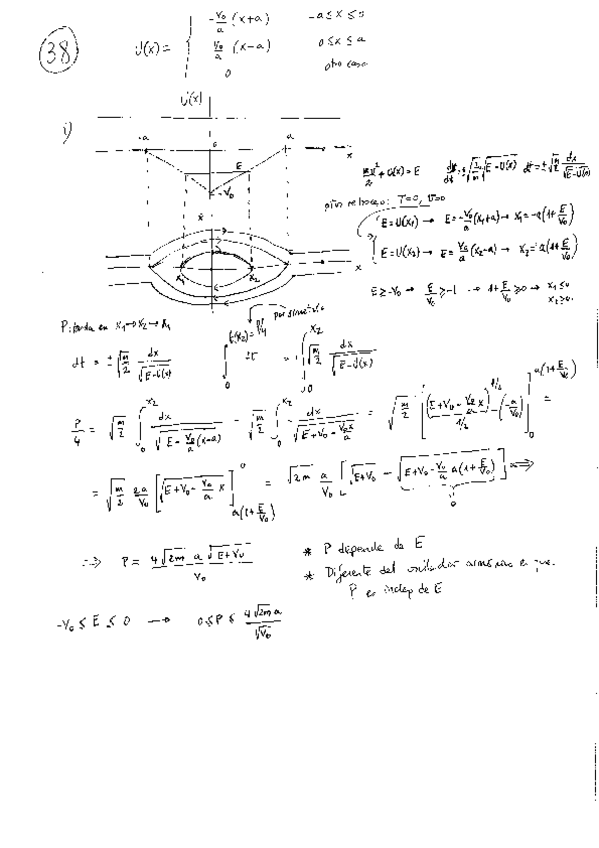 38
U(x) = { -V₀/a (x+a)   -a≤x≤0
V₀/a (x-a)   0≤x≤a
0   otro caso
i)
U(x)
-a   0   a   x
E
-V₀
ẋ
x₁   x₂   x
mẋ²/2 + U(x) = E   dx/dt = ±√(2/m) √(E-U(x))   dt = ±√(m/2) dx/√(E-U(x))
T=0, v=0
E = U(x₁) → E = -V₀/a (x₁+a) → x₁ = -a(1+E/V₀)
E = U(x₂) → E = V₀/a (x₂-a) → x₂ = a(1+E/V₀)
E ≥ -V₀ → E/V₀ ≥ -1 → 1+E/V₀ ≥ 0 → x₁ ≤ 0
x₂ ≥ 0
P: tarda en x₁→x₂→x₁
por simetría
dt = ±√(m/2) dx/√(E-U(x))   ∫₀^{t(x₂)=P/4} dt = ∫₀^{x₂} √(m/2) dx/√(E-U(x))
P/4 = √(m/2) ∫₀^{x₂} dx/√(E-V₀/a(x-a)) = √(m/2) ∫₀^{x₂} dx/√(E+V₀-V₀x/a) = √(m/2) [(E+V₀-V₀/a x)^{1/2}/(1/2) (-a/V₀)]₀^{a(1+E/V₀)} =
= √(m/2) 2a/V₀ [√(E+V₀-V₀/a x)]_{a(1+E/V₀)}^0 = √(2m) a/V₀ [√(E+V₀) - √(E+V₀-V₀/a a(1+E/V₀))] ⇒
0
⇒ P = 4√(2m) a √(E+V₀)/V₀
* P depende de E
* Diferente del oscilador armónico en que
P es indep de E
-V₀ ≤ E ≤ 0 → 0 ≤ P ≤ 4√(2m) a/√V₀